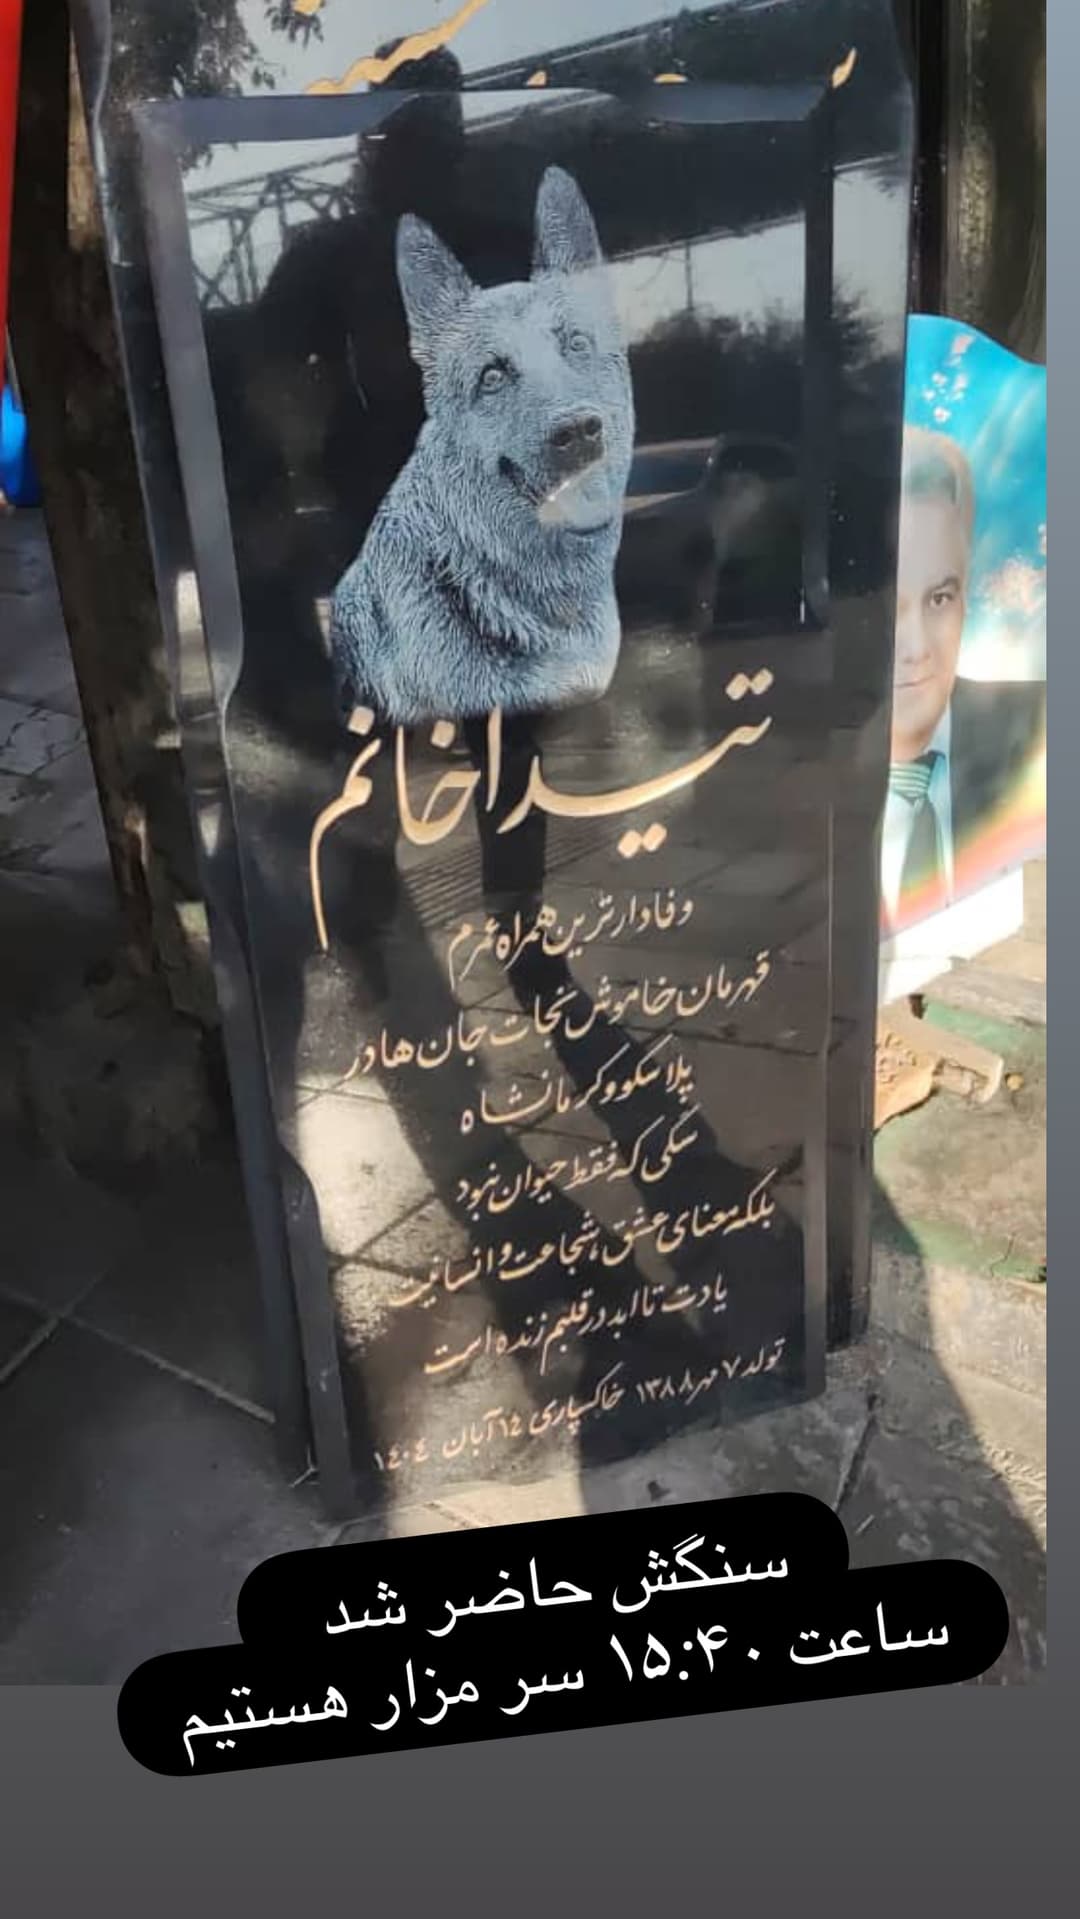 تیدا خانم
وفادارترین همراه عمرم
قهرمان خاموش نجات جان ها در
پلاسکو و کرمانشاه
سگی که فقط حیوان نبود
بلکه معنای عشق، شجاعت و انسانیت
یادت تا ابد در قلبم زنده است
تولد ۷ مهر ۱۳۸۸ خاکسپاری ۱٤ آبان ۱٤۰٤
سنگش حاضر شد
ساعت ۱۵:۴۰ سر مزار هستیم